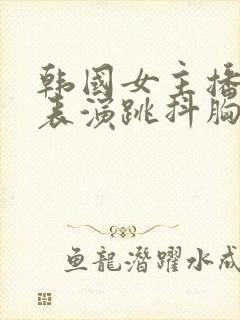 韩国女主播
表演跳抖胸
鱼龍潛躍水成